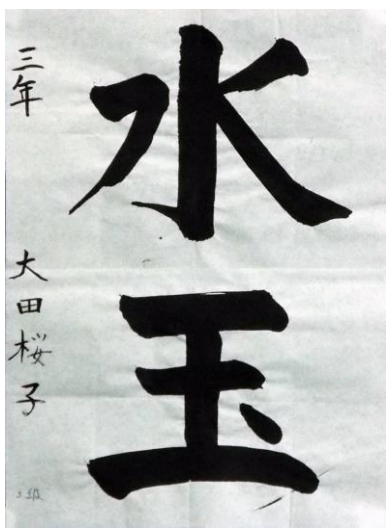 水玉
三年
大田桜子